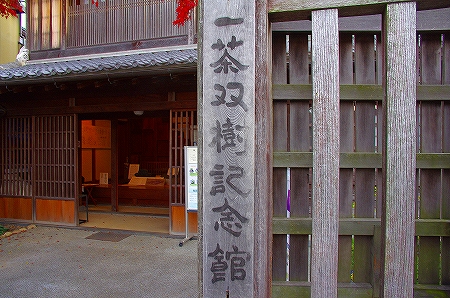 一茶双樹記念館